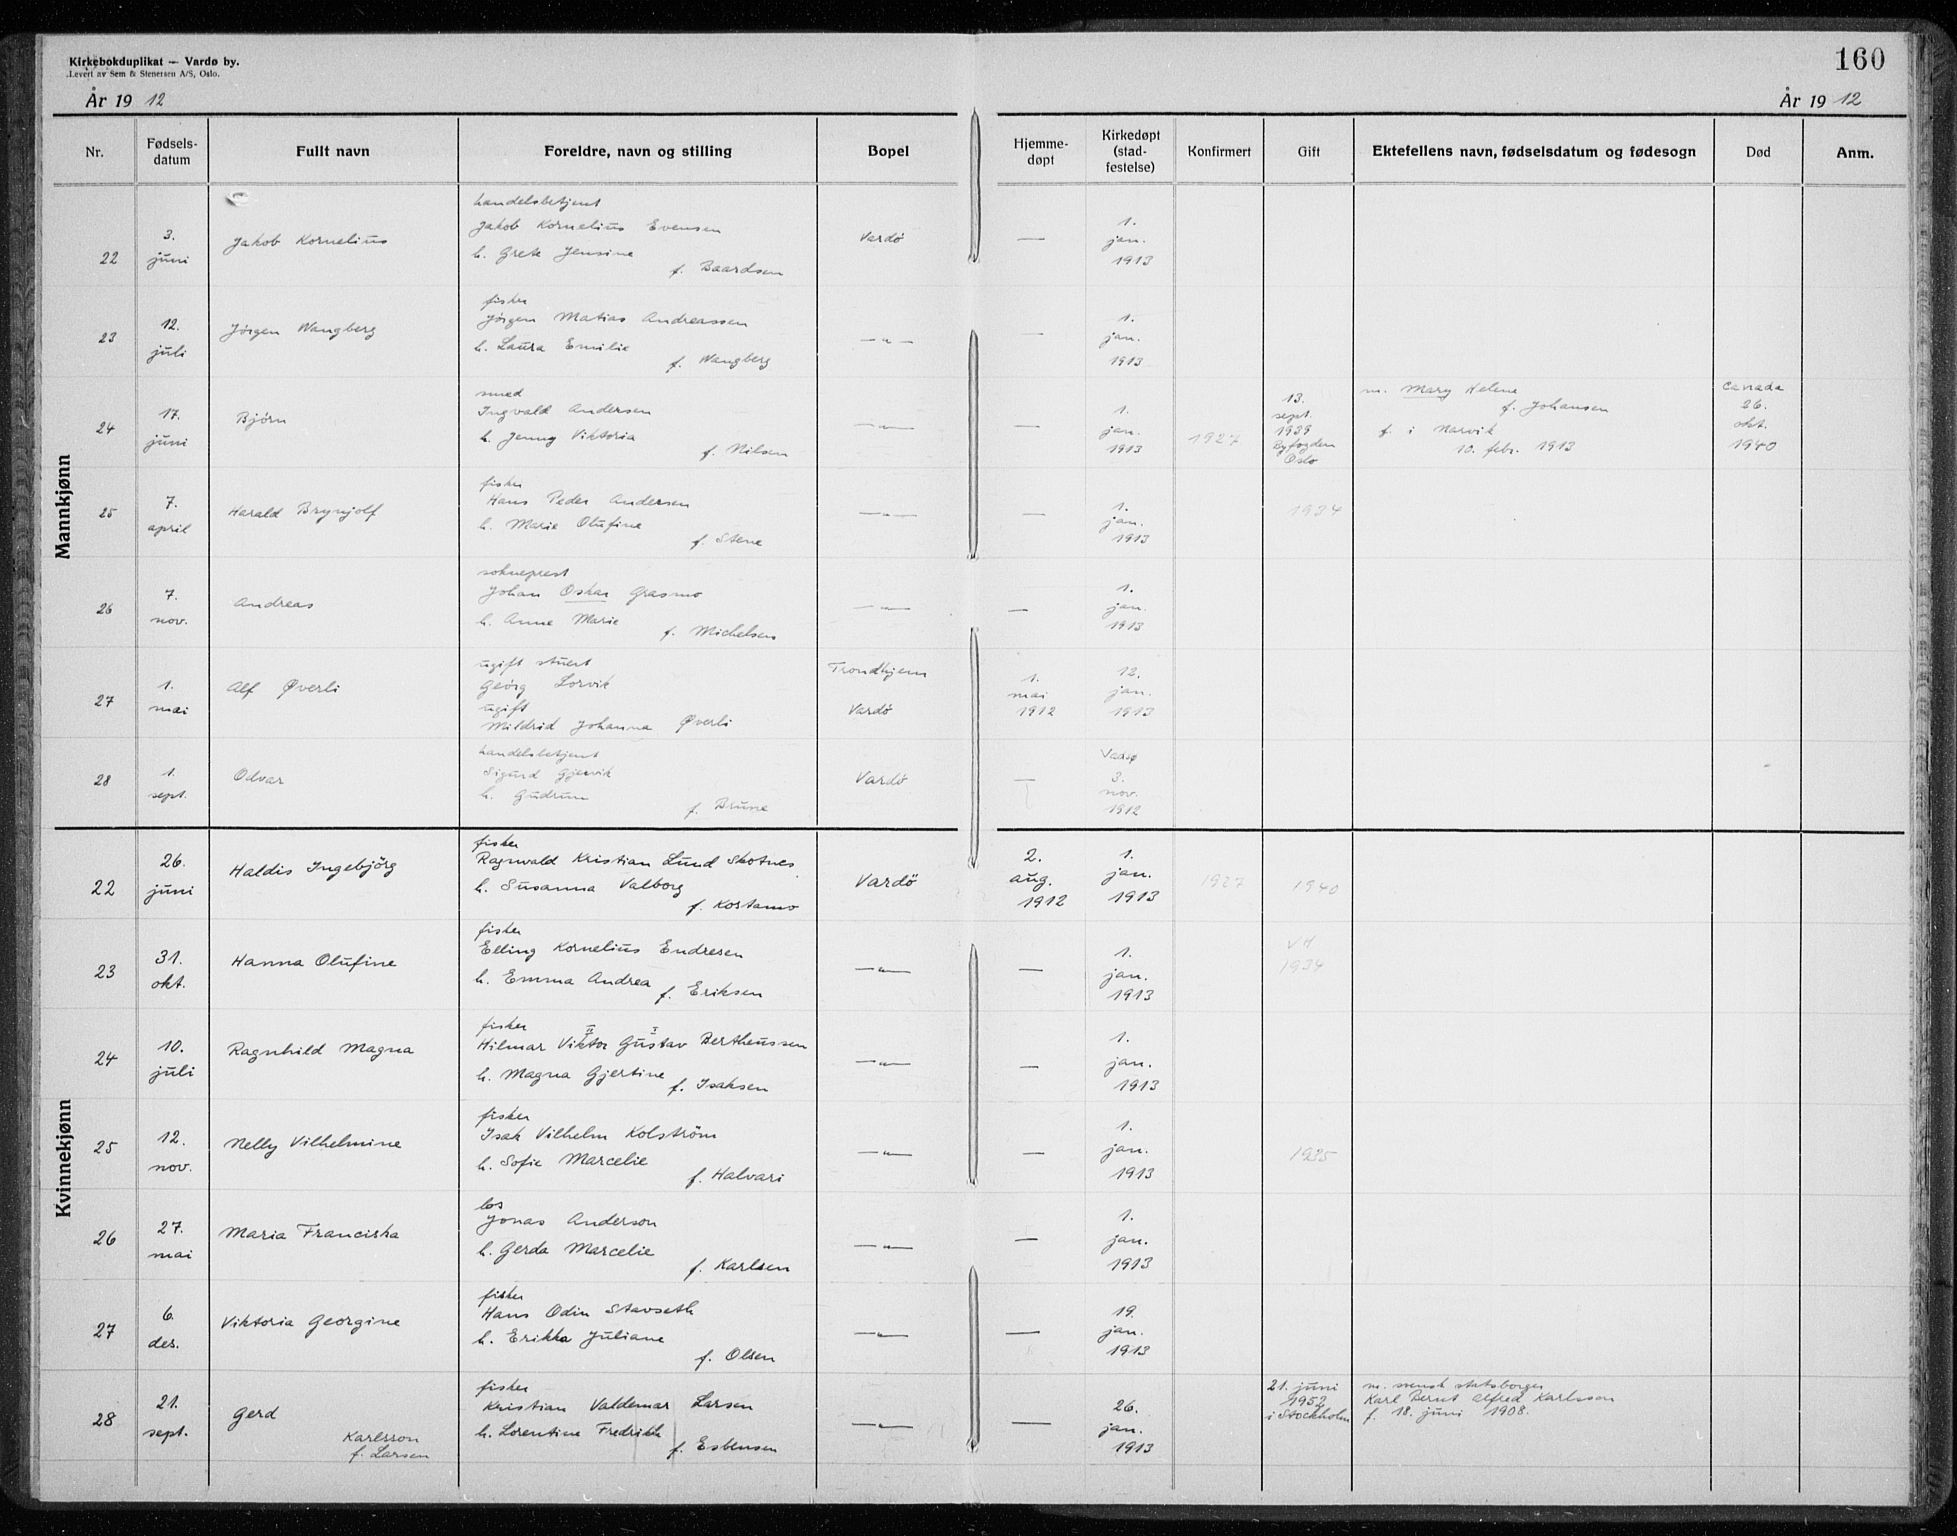 Kirkebokduplikat — Vardø by.
Levert av Sem & Stenersen A/S, Oslo.
160
År 19 12
År 19 12
Nr. Fødsels-datum Fullt navn Foreldre, navn og stilling Bopel Hjemme-døpt Kirkedøpt (stad-festelse) Konfirmert Gift Ektefellens navn, fødselsdatum og fødesogn Død Anm.
Mannkjønn
handelsbetjent
22 3. juni Jakob Kornelius Jakob Kornelius Evensen Vardø — 1. jan. 1913
h. Grete Jensine
f. Baardsen
fisker
23 12. juli Jørgen Wangberg Jørgen Matias Andreassen —"— — 1. jan. 1913
h. Laura Emilie
f. Wangberg
smed
24 17. juni Bjørn Ingvald Andersen —"— — 1. jan. 1913 1927 13. sept. 1939 Byfogden Oslo m. Mary Helene Canada 26. okt. 1940
h. Jenny Viktoria f. Johansen
f. Nilsen f. i Narvik
10. febr. 1913
fisker
25 7. april Harald Brynjolf Hans Peder Andersen —"— — 1. jan. 1913 1934
h. Marie Olufine
f. Stene
sokneprest
26 7. nov. Andreas Johan Oskar Grasmo —"— — 1. jan. 1913
h. Anne Marie
f. Michelsen
ugift stuert Trondhjem
27 1. mai Alf Øverli Georg Lorvik 1. mai 1912 12. jan. 1913
ugift Vardø
Mildrid Johanna Øverli
handelsbetjent
28 1. sept. Odvar Sigurd Gjervik Vardø — Vadsø 3. nov. 1912
h. Gudrun
f. Brune
Kvinnekjønn
fisker
22 26. juni Haldis Ingebjörg Ragnvald Kristian Lund Skotnes Vardø 2. aug. 1912 1. jan. 1913 1927 1940
h. Susanna Valborg
f. Kostamo
fisker
23 31. okt. Hanna Olufine Elling Kornelius Endresen —"— — 1. jan. 1913 VH 1934
h. Emma Andrea
f. Eriksen
fisker II I
24 10. juli Ragnhild Magna Hilmar Viktor Gustav Bertheussen —"— — 1. jan. 1913
h. Magna Gjertine
f. Isaksen
fisker
25 12. nov. Nelly Vilhelmine Isak Vilhelm Kolström —"— — 1. jan. 1913 1935
h. Sofie Marcelie
f. Halvari
los
26 27. mai Maria Franciska Jonas Anderson —"— — 1. jan. 1913
h. Gerda Marcelie
f. Karlsen
fisker
27 6. des. Viktoria Georgine Hans Odin Stavseth —"— — 19. jan. 1913
h. Erikka Juliane
f. Olsen
fisker
28 21. sept. Gerd Kristian Valdemar Larsen —"— — 26. jan. 1913 21. juni 1952 i Stockholm m. svensk statsborger
Karlsson h. Lorentine Fredrikke Karl Bernt Alfred Karlsson
f. Larsen f. Esbensen f. 18. juni 1908.